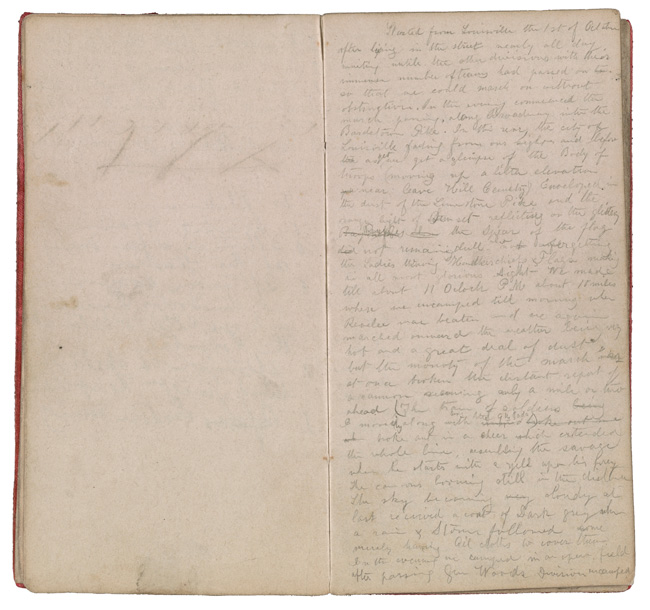 March from Louisville the 1st of Oct
after lying in the street nearly all day
waiting until the other divisions with their
number of had passed on
so that we could march on without
obstruction. In the evening commenced the
march passing along Broadway into the
Bardstown Pike. In the rear the city of
Louisville fading from our sight and before
us get a glimpse of the Body of
troops moving up a little elevation
near Cave Hill Cemetery Enveloped in
the dust of the Limestone Pike and the
rays of Sunset reflecting on the
the of the flag
did not remain
the Ladies waving Handkerchiefs & Flags making
in all most glorious sight. We marched
till about 11 Oclock P.M. about 15 miles
where we encamped till morning when
Revelee was beaten and we again
marched onward the weather being very
hot and a great deal of dust
but the monody of the march
at once broken the distant report of
a cannon seeming only a mile or two
ahead (The of soldiers
I moved along with
broke out in a cheer which extended
the whole line, resembling the savage
when he starts with a yell upon his prey
the cannons booming still in the distance
The sky becoming cloudy at
last received a coat of Dark grey when
a rain & Storm followed some
merely having Oil cloths to cover them
In the evening we camped in an open field
After passing Gen Woods Division encamped